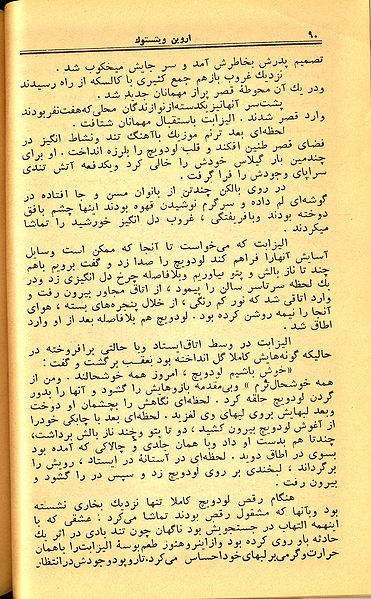 ۹۰
اروین ویتستوك
تصمیم پدرش بخاطرش آمد و سر جایش میخکوب شد .
نزدیك غروب بازهم جمع کثیری با کالسکه از راه رسیدند
ودر یك آن محوطهٔ قصر پراز مهمانان جدید شد .
پشت‌سر آنهانیز یکدسته‌از نوازندگان محلی‌که‌هفت‌نفربودند
وارد قصر شدند . الیزابت باستقبال مهمانان شتافت .
لحظه‌ای بعد ترنم موزیك باآهنگ تند ونشاط انگیز در
فضای قصر طنین افکند و قلب لودویج را بلرزه انداخت . او برای
چندمین بار گیلاس خودش را خالی کرد ویکدفعه آتش تندی
سراپای وجودش را فرا گرفت .
در روی بالکن چندتن از بانوان مسن و جا افتاده در
گوشه‌ای لم داده و سرگرم نوشیدن قهوه بودند اینها چشم بافق
دوخته بودند وبافریفتگی ، غروب دل انگیز خورشید را تماشا
میکردند .
الیزابت که می‌خواست تا آنجا که ممکن است وسایل
آسایش آنهارا فراهم کند لودویج را صدا زد و گفت برویم باهم
چند تا ناز بالش و پتو بیاوریم وبلافاصله چرخ دل انگیزی زد ودر
یك لحظه سرتاسر سالن را پیمود ، از اتاق مجاور بیرون رفت و
وارد اتاقی شد که نور کم رنگی ، از خلال پنجره‌های بسته ، هوای
آنجا را نیمه روشن کرده بود . لودویج هم بلافاصله بعد از او وارد
اطاق شد .
الیزابت در وسط اتاق‌ایستاد وبا حالتی برافروخته در
حالیکه گونه‌هایش کاملا گل انداخته بود بعقب برگشت و گفت :
«خوش باشیم لودویج ، امروز همه خوشحالند . ومن از
همه خوشحال‌ترم » وبی‌مقدمه بازوهایش را گشود و آنها را بدور
گردن لودویج حلقه کرد . لحظه‌ای نگاهش را بچشمان او دوخت
وبعد لبهایش بروی لبهای وی لغزید . لحظه‌ای بعد با چابکی خودرا
از آغوش لودویج بیرون کشید ، دو تا پتو وچند ناز بالش برداشت،
چندتا هم بدست او داد وبا همان جلدی و چالاکی که آمده بود
بسوی در اطاق دوید . لحظه‌ای در آستانهٔ در ایستاد ، رویش را
برگرداند ، لبخندی بر روی لودویج زد و سپس در را گشود و
بیرون رفت .
هنگام رقص لودویج کاملا تنها نزدیك بخاری نشسته
بود وبآنها که مشغول رقص بودند تماشا می‌کرد : عشقی که با
اینهمه التهاب در جستجویش بود ناگهان چون تند بادی در اثر یك
حادثه باو روی کرده بود وازاینرو هنوز طعم‌بوسهٔ الیزابت‌را باهمان
حرارت وگرمی برلبهای خوداحساس می‌کرد،تاروپودوجودش‌درانتظار